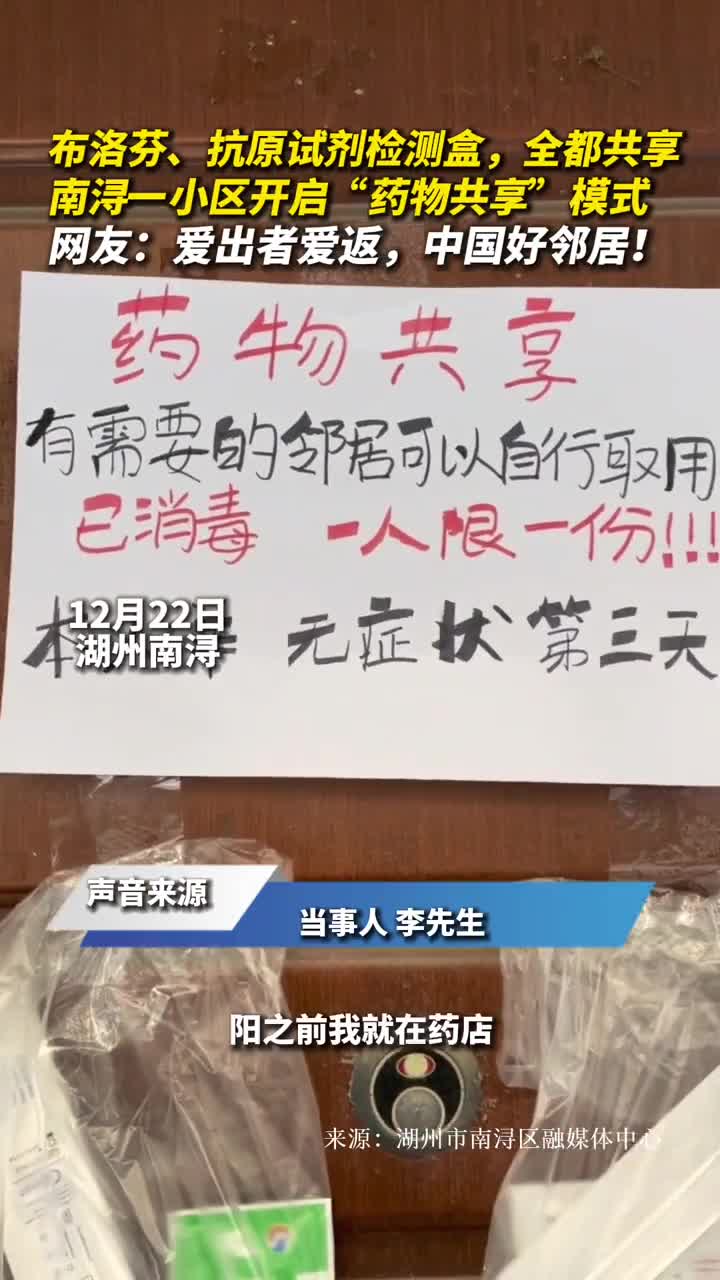 布洛芬、抗原试剂检测盒，全都共享
南浔一小区开启“药物共享”模式
网友：爱出者爱返，中国好邻居！
药物共享
有需要的邻居可以自行取用
已消毒 一人限一份!!!
12月22日
湖州南浔
本 无症状 第三天
声音来源
当事人 李先生
阳之前我就在药店
来源：湖州市南浔区融媒体中心